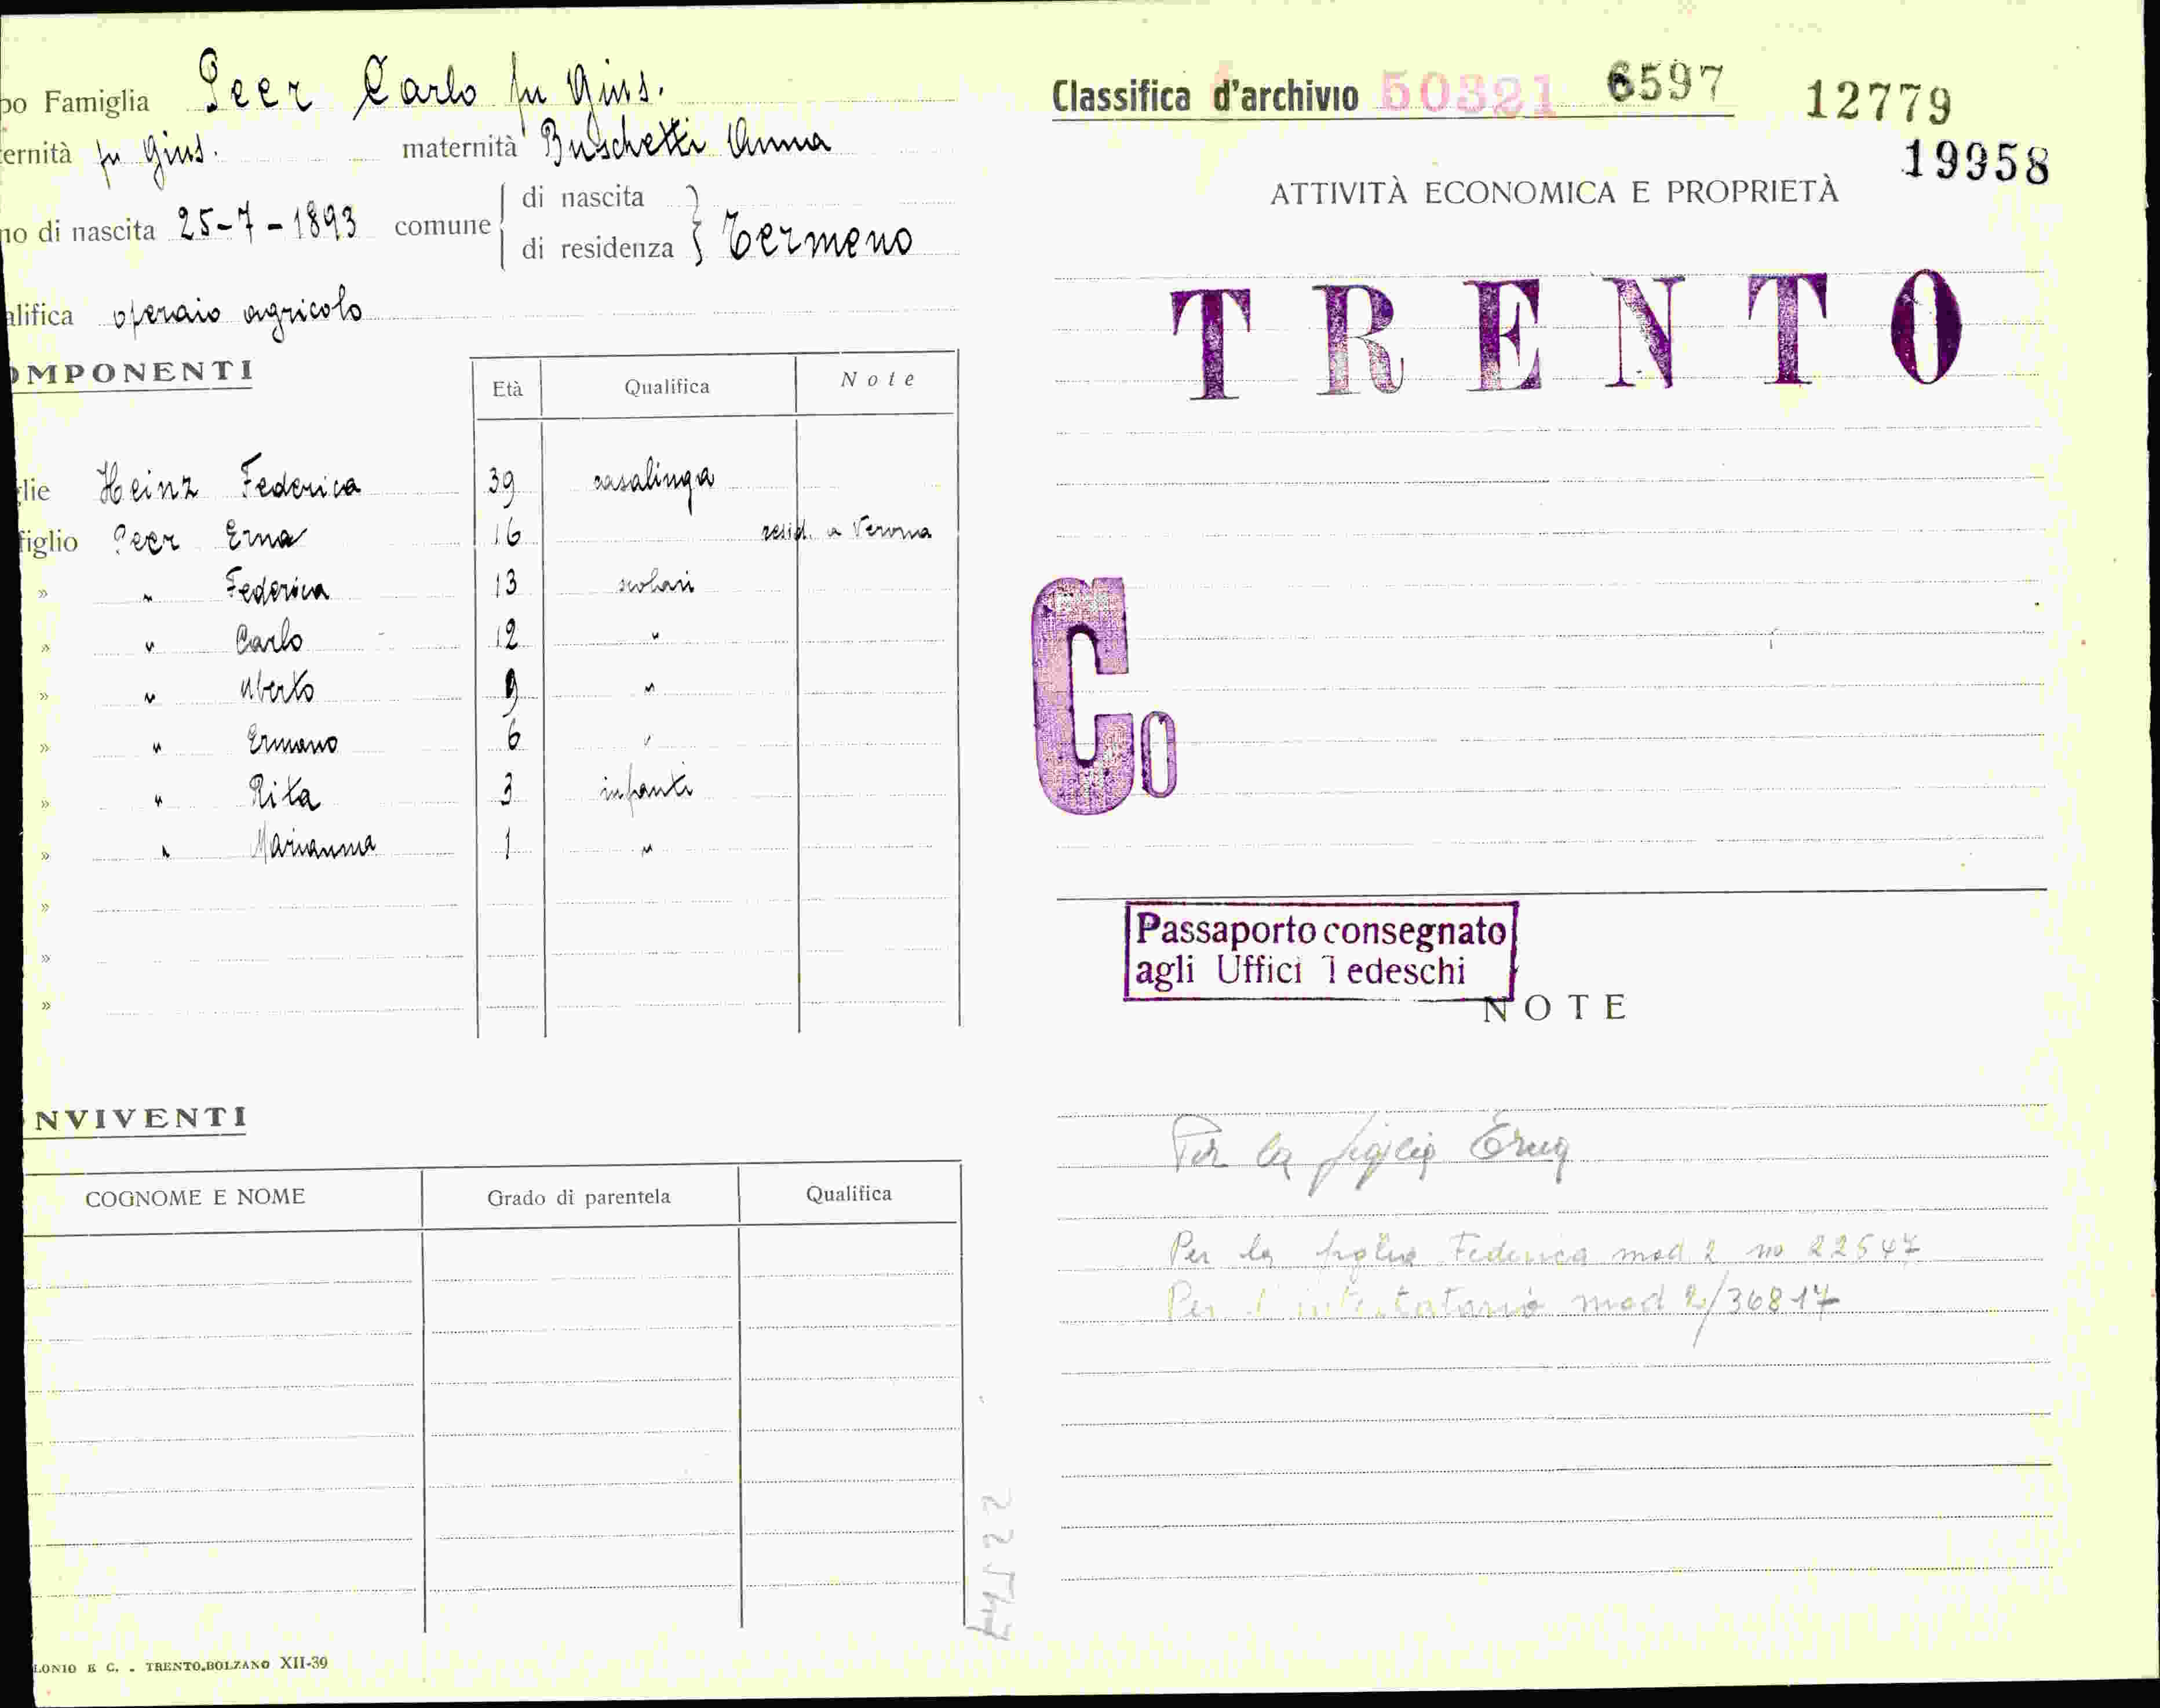 po Famiglia Peer Carlo fu Gius.
ernità fu Gius. maternità Buschetti Anna
no di nascita 25-7-1893 comune di nascita di residenza Termeno
alifica operaio agricolo
OMPONENTI
Età Qualifica Note
glie Heinz Federica 39 casalinga
figlio Peer Erna 16 resid. a Verona
» " Federica 13 scolari
» " Carlo 12 "
» " Uberto 9 "
» " Ermano 6 "
» " Rita 3 infanti
» " Marianna 1 "
»
»
»
NVIVENTI
COGNOME E NOME Grado di parentela Qualifica
LONIO E C. - TRENTO-BOLZANO XII-39
22547
Classifica d'archivio 50321 6597 12779
19958
ATTIVITÀ ECONOMICA E PROPRIETÀ
TRENTO
Co
Passaporto consegnato
agli Uffici Tedeschi
NOTE
Per la figlia Erna
Per la figlia Federica mod 2 no 22547
Per l'intestatario mod 2/36817